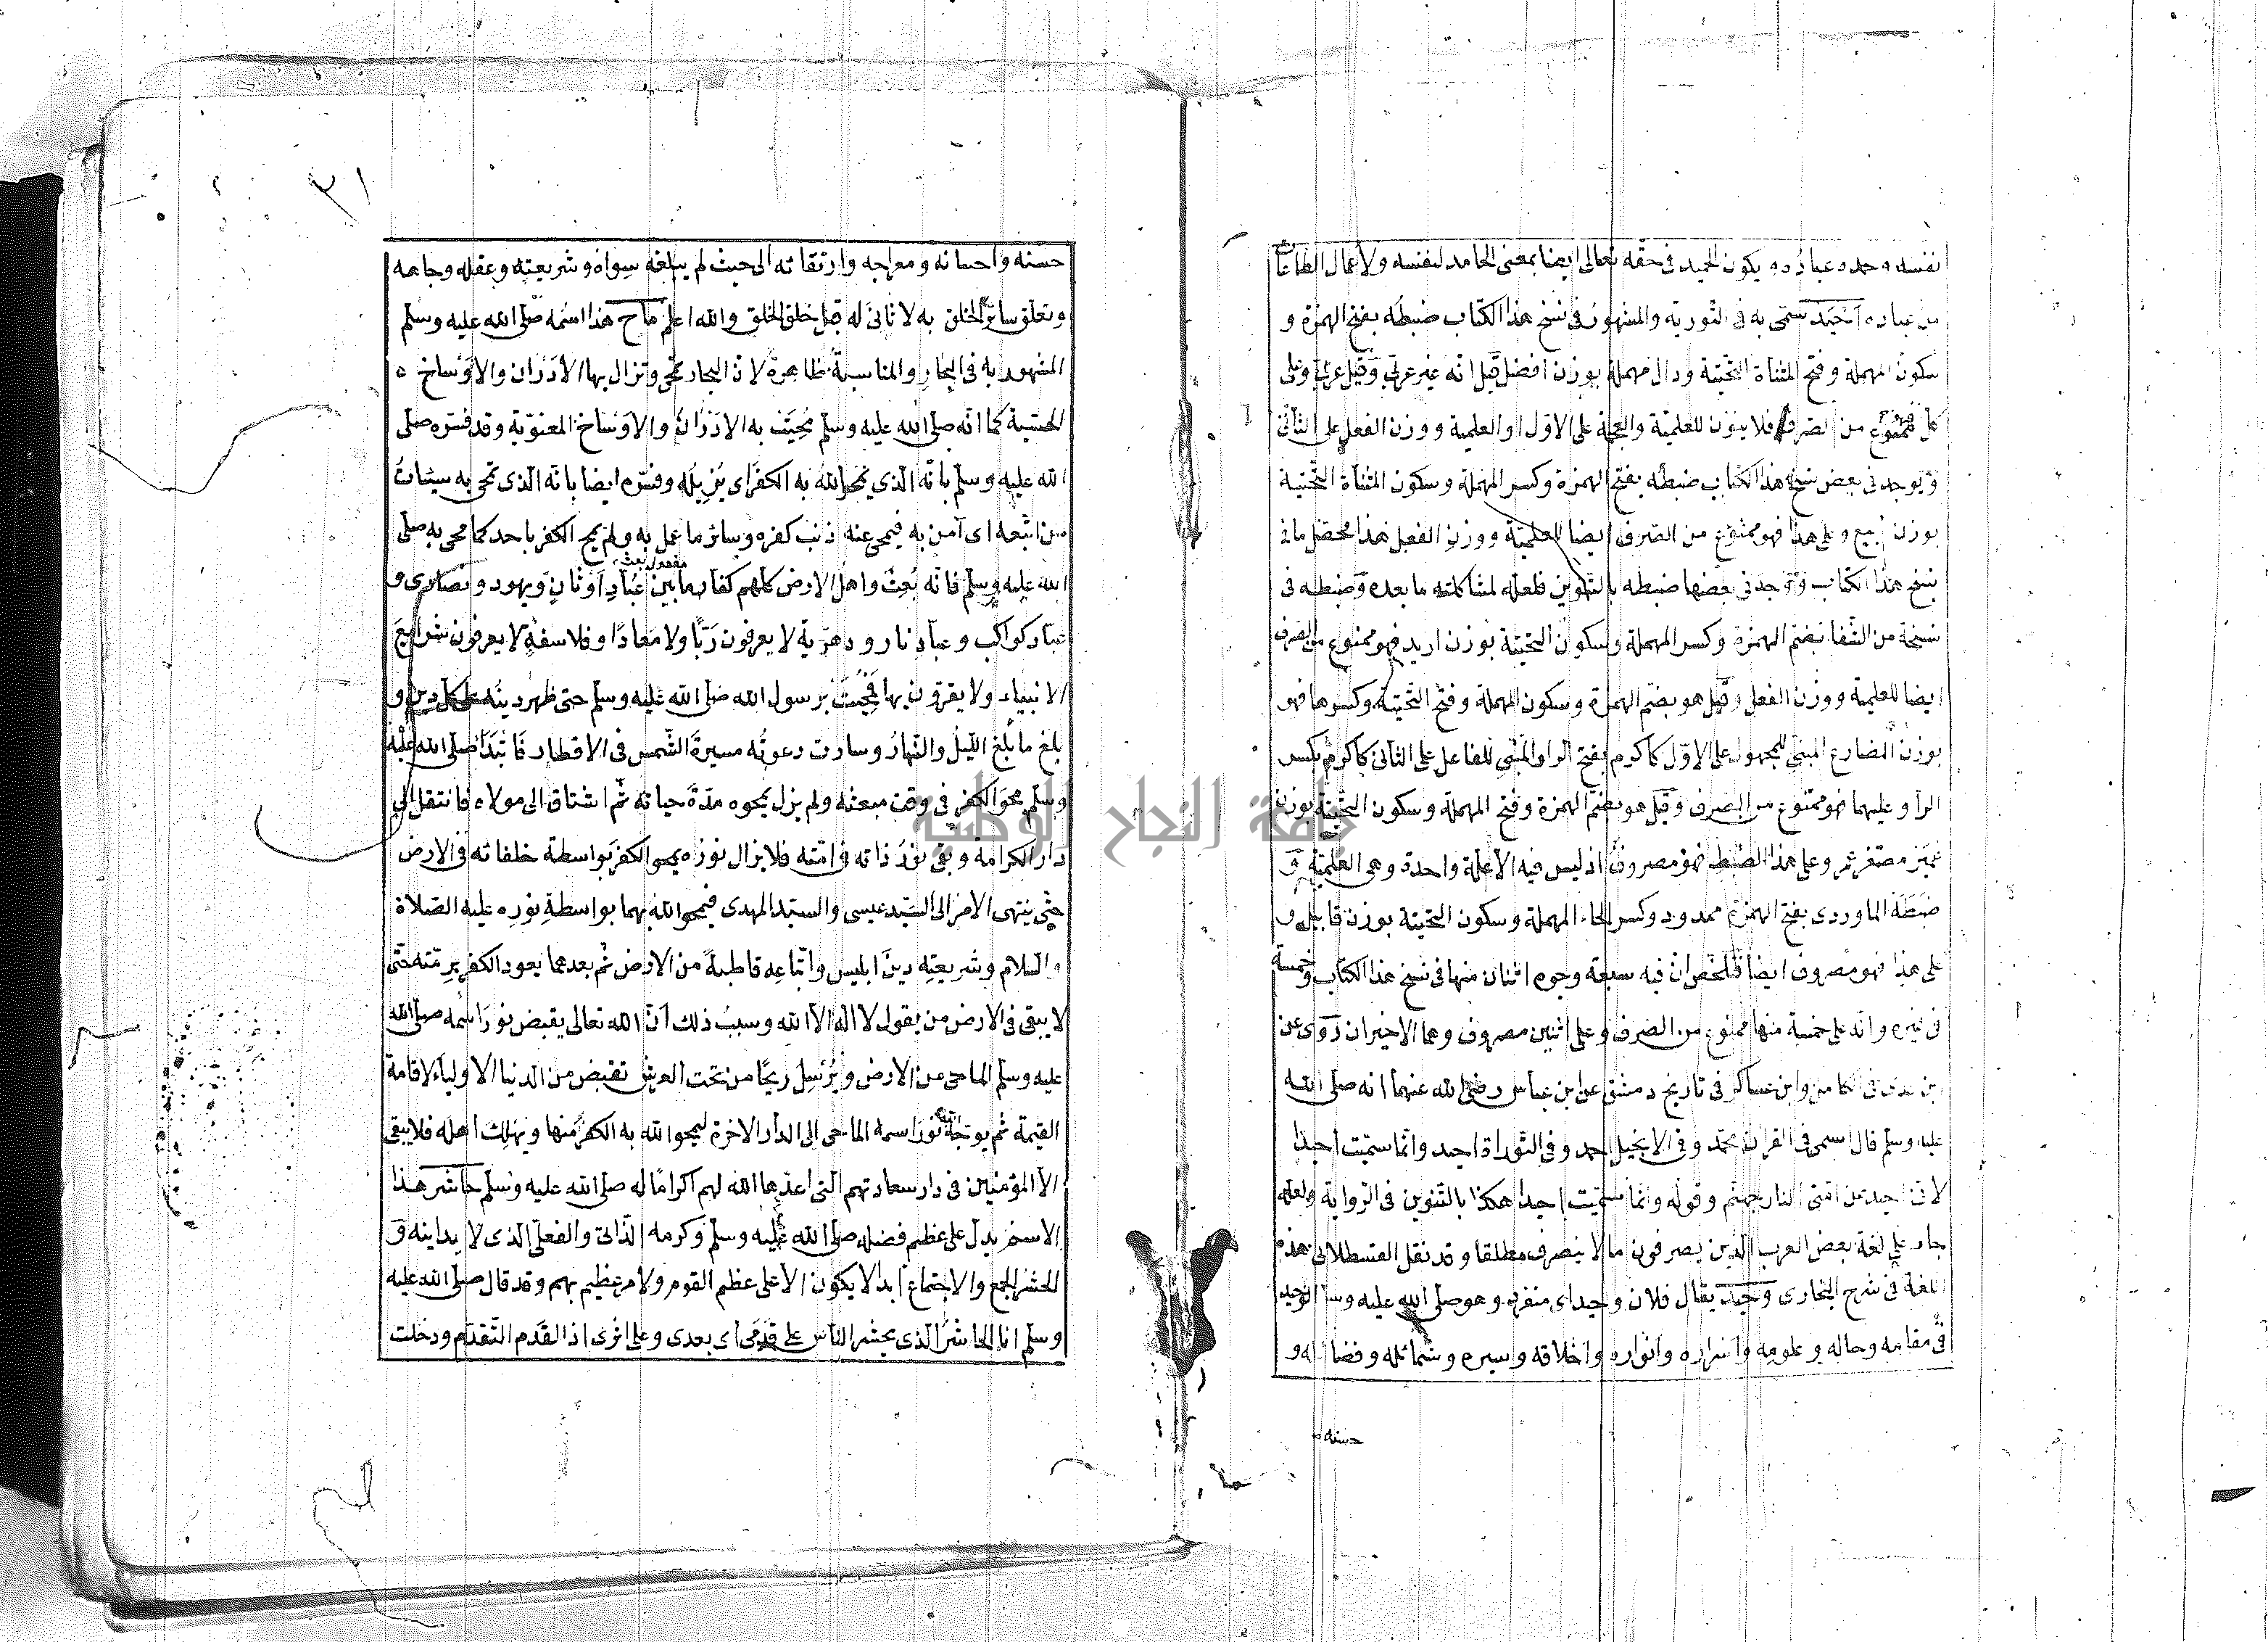 نفسه وحمده عباده ويكون الحميد في حقه تعالى ايضا بمعنى الحامد لنفسه ولاعمال الطاعات
من عباده أحيد سمى به في التورية والمشهور في نسخ هذا الكتاب ضبطه بفتح الهمزة و
سكون المهملة وفتح المثناة التحتية ودال مهملة بوزن افضل قيل انه غير عربي وقيل عربي وعلى
كل فممنوع من الصرف فلا ينون للعلمية والعجمة على الاول او العلمية ووزن الفعل على الثاني
ويوجد في بعض نسخ هذا الكتاب ضبطه بفتح الهمزة وكسر المهملة وسكون المثناة التحتية
بوزن ابيع وعلى هذا فهو ممنوع من الصرف ايضا للعلمية ووزن الفعل هذا محصل ما في
نسخ هذا الكتاب ووجد في بعضها ضبطه بالتنوين فلعله لمشاكلته ما بعده وضبطه في
نسخة من الشفا بضم الهمزة وكسر المهملة وسكون التحتية بوزن اريد فهو ممنوع من الصرف
ايضا للعلمية ووزن الفعل وقيل هو بضم الهمزة وسكون المهملة وفتح التحتية وكسرها فهو
بوزن المضارع المبني للمجهول على الاول كاكرم بفتح الرا والمبني للفاعل على الثاني كاكرم بكسر
الرا وعليهما فهو ممنوع من الصرف وقيل هو بضم الهمزة وفتح المهملة وسكون التحتية بوزن
عمير مصغر عمر وعلى هذا الضبط فهو مصروف اذ ليس فيه الا علة واحدة وهي العلمية و
ضبطه الماوردي بفتح الهمزة ممدود وكسر الحاء المهملة وسكون التحتية بوزن قابيل و
على هذا فهو مصروف ايضا فتلخص ان فيه سبعة وجوه اثنان منها في نسخ هذا الكتاب وخمسة
في غيره وانه على خمسة منها ممنوع من الصرف وعلى اثنين مصروف وهما الاخيران روى عن
ابن عدي في الكامل وابن عساكر في تاريخ دمشق عن ابن عباس رضي الله عنهما انه صلى الله
عليه وسلم قال اسمي في القران محمد وفي الانجيل احمد وفي التوراة احيد وانما سميت احيدا
لاني احيد عن امتي النار جهنم وقوله وانما سميت احيدا هكذا بالتنوين في الرواية ولعله
جاء على لغة بعض العرب الذين يصرفون ما لا ينصرف مطلقا وقد نقل القسطلاني هذه
اللغة في شرح البخاري وحيد يقال فلان وحيد اي منفرد وهو صلى الله عليه وسلم الوحيد
في مقامه وحاله وعلومه واسراره وانواره واخلاقه وسيره وشمائله وفضائله و
حسنه
٣١
حسنه واحسانه ومعراجه وارتقائه الى حيث لم يبلغه سواه وشريعته وعقله وجاهه
وتعلق سائر الخلق به لا ثاني له قبل خلق الخلق والله اعلم ماح هذا اسمه صلى الله عليه وسلم
المشهور به في البحار والمناسبة ظاهرة لان البحار تمحي وتزال بها الادران والاوساخ ه
الحسية كما انه صلى الله عليه وسلم محيت به الادران والاوساخ المعنوية وقد فسره صلى
الله عليه وسلم بانه الذي يمحو الله به الكفر اي يزيله وفسره ايضا بانه الذي تمحى به سيئات
من اتبعه اي آمن به فيمحى عنه ذنب كفره وسائر ما عمل به ولم يمح الكفر باحد كما محي به صلى
مفعول بعث
الله عليه وسلم فانه بعث واهل الارض كلهم كفار ما بين عباد اوثان ويهود ونصارى و
عباد كواكب وعباد نار ودهرية لا يعرفون ربا ولا معادا وفلاسفة لا يعرفون شرائع
الانبياء ولا يقرون بها فمحيت برسول الله صلى الله عليه وسلم حتى ظهر دينه على كل دين و
بلغ ما بلغ الليل والنهار وسارت دعوته مسيرة الشمس في الاقطار فابتدا صلى الله عليه
وسلم محو الكفر في وقت مبعثه ولم يزل يمحوه مدة حياته ثم اشتاق الى مولاه فانتقل الى
دار الكرامة وبقى نور ذاته في امته فلا يزال نوره يمحو الكفر بواسطة خلفائه في الارض
حتى ينتهى الامر الى السيد عيسى والسيد المهدى فيمحو الله بهما بواسطة نوره عليه الصلاة
والسلام وشريعته دين ابليس واتباعه قاطبة من الارض ثم بعدهما يعود الكفر برمته حتى
لا يبقى في الارض من يقول لا اله الا الله وسبب ذلك ان الله تعالى يقبض نور اسمه صلى الله
عليه وسلم الماحي من الارض ويرسل ريحا من تحت العرش تقبض من الدنيا الاولياء لاقامة
القيمة ثم يوجه نور اسمه الماحى الى الدار الاخرة ليمحو الله به الكفر منها ويهلك اهله فلا يبقى
الا المؤمنين في دار سعادتهم التى اعدها الله لهم اكراما له صلى الله عليه وسلم حاشر هذا
الاسم يدل على عظم فضله صلى الله عليه وسلم وكرمه الذاتي والفعلي الذى لا يداينه و
الحشر الجمع والاجتماع ابدا لا يكون الا على عظم القوم ولامر عظيم بهم وقد قال صلى الله عليه
وسلم انا الحاشر الذى يحشر الناس على قدمى اى بعدى وعلى اثرى اذ القدم التقدم ودخلت
جامعة النجاح الوطنية